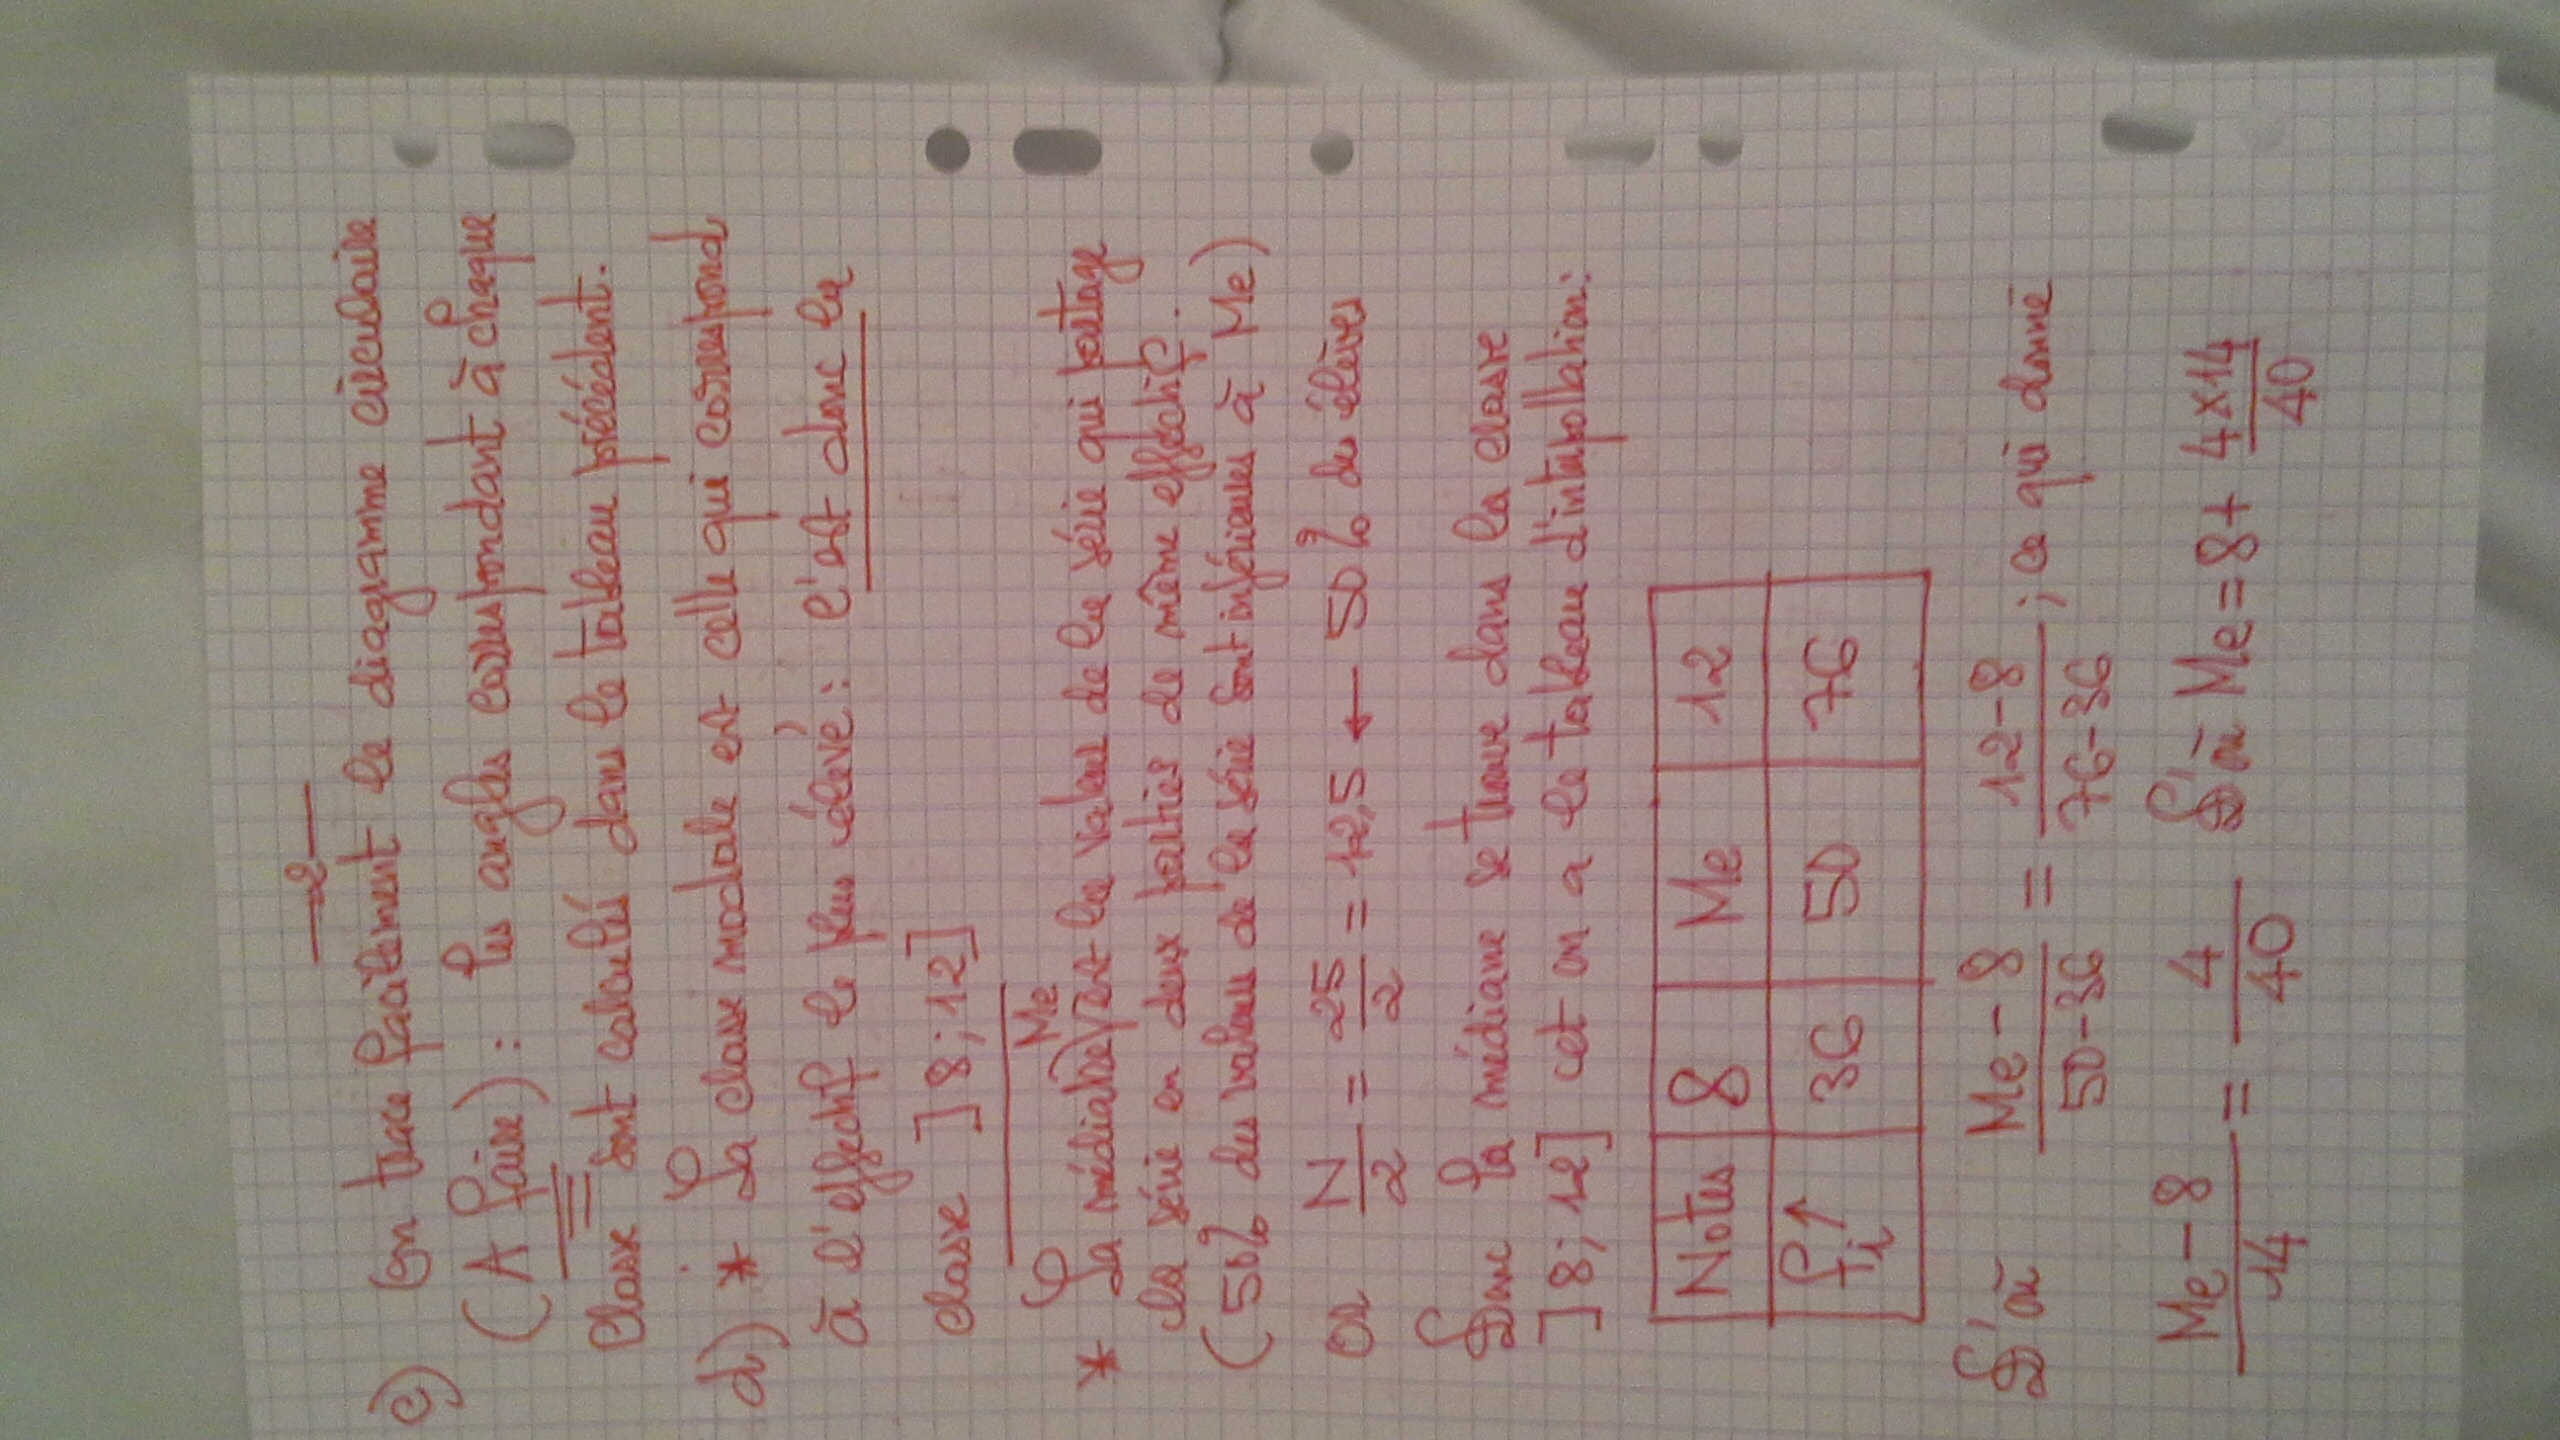 —2—
c) On trace facilement le diagramme circulaire
(A faire) : les angles correspondant à chaque
classe sont calculés dans le tableau précédent.
d) * La classe modale est celle qui correspond
à l'effectif le plus élevé : c'est donc la
classe ]8;12]
* La médiane Me est la valeur de la série qui partage
la série en deux parties de même effectif.
(50% des valeurs de la série sont inférieures à Me)
or N/2 = 25/2 = 12,5 ← 50% des élèves
Donc la médiane se trouve dans la classe
]8;12] cet on a le tableau d'interpollation:
Notes 8 Me 12
fi↑ 36 50 76
D'où (Me-8)/(50-36) = (12-8)/(76-36) ; ce qui donne
(Me-8)/14 = 4/40 D'où Me = 8+ (4×14)/40